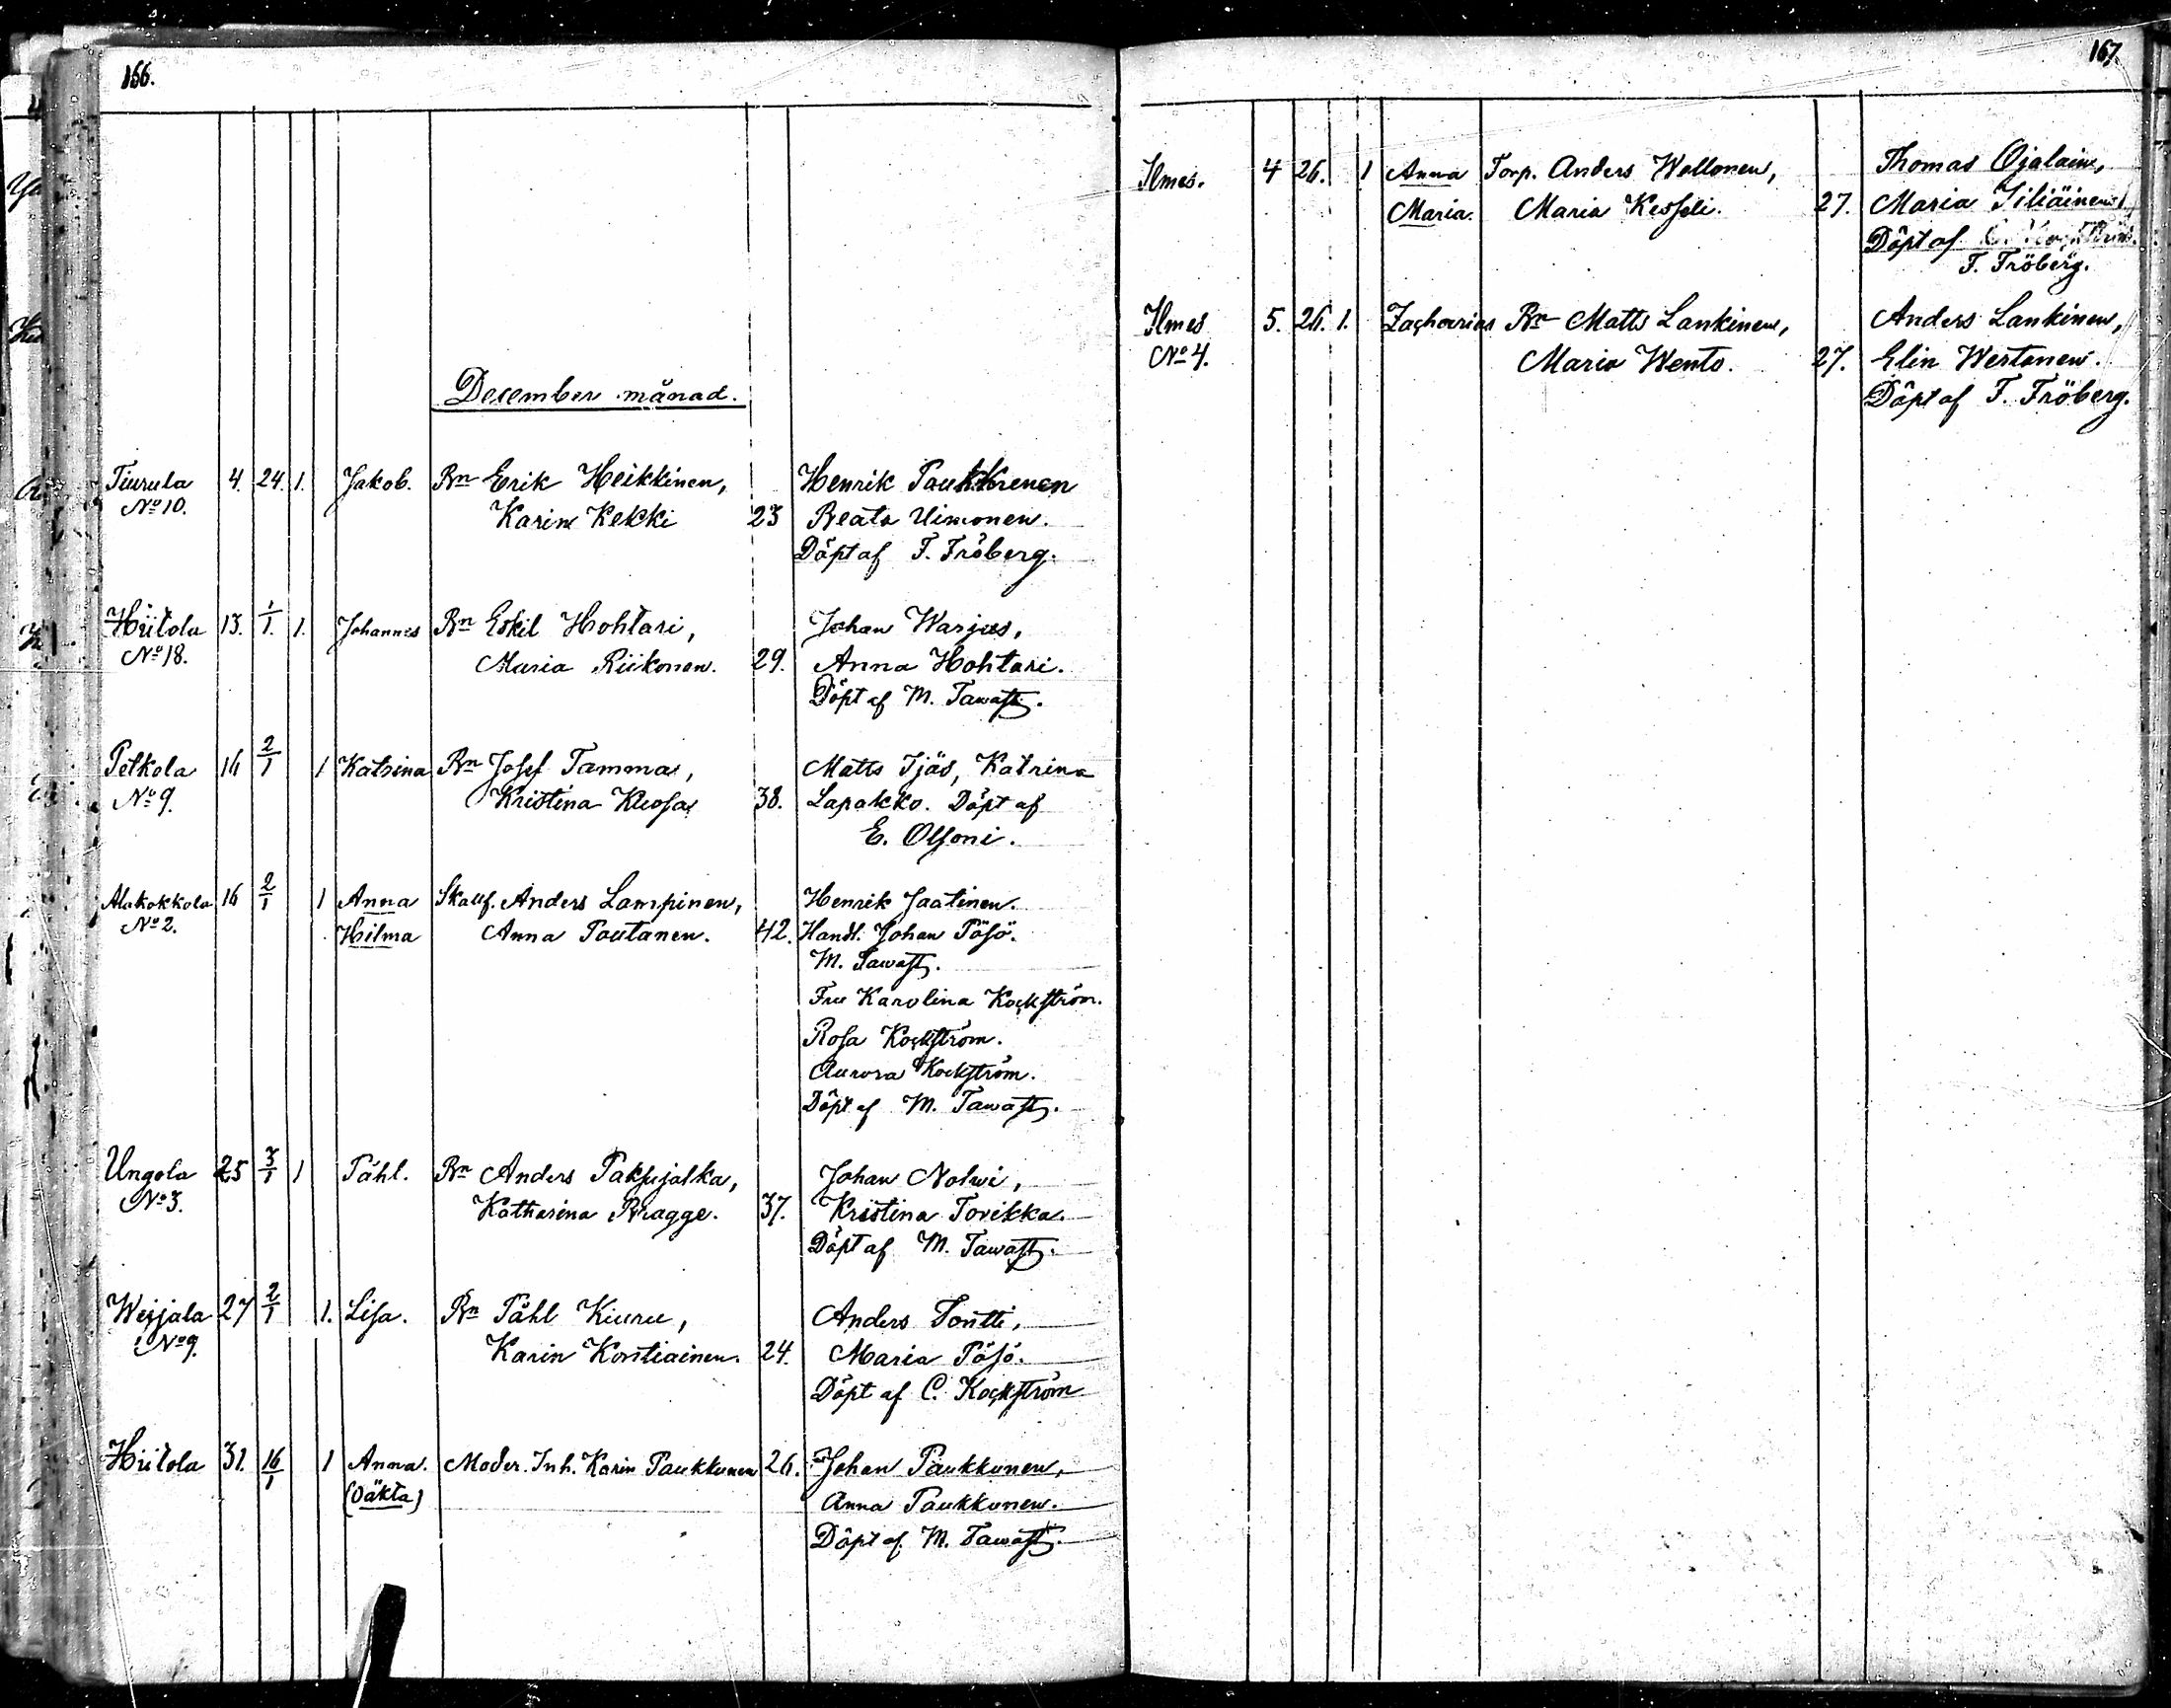 166.
December månad.
Tiurula 4. 24. 1. Jakob. Bn Erik Heikkinen, Henrik Paukkunen
No 10. Karin Kekki 23 Beata Uimonen.
Döpt af F. Fröberg.
Hiitola 13. 1/1. 1. Johannes Bn Eskil Hohtari, Johan Warjus,
No 18. Maria Riikonen. 29. Anna Hohtari.
Döpt af M. Tawast.
Petkola 16 2/1 1 Katrina Bn Josef Tamma, Matts Ijäs, Katrina
No 9. Kristina Kuosa 38. Lapakko. Döpt af
E. Olsoni.
Alakokkola 16 2/1 1 Anna Skallf. Anders Lampinen, Henrik Jaatinen.
No 2. Hilma Anna Poutanen. 42. Handl. Johan Pösö.
M. Tawast.
Fru Karolina Kockström.
Rosa Kockström.
Aurora Kockström.
Döpt af M. Tawast.
Ungola 25 3/1 1 Påhl. Bn Anders Paksujalka, Johan Nolwi,
No 3. Katharina Bragge. 37. Kristina Torikka.
Döpt af M. Tawast.
Weijala 27 2/1 1. Lisa. Bn Påhl Kiuru, Anders Tontti,
No 9. Karin Kontiainen. 24. Maria Pösö.
Döpt af C. Kockström
Hiitola 31. 16/1 1 Anna. Moder. Inh. Karin Paukkunen 26. Johan Paukkunen,
(Oäkta) Anna Paukkunen.
Döpt af M. Tawast.
167.
Ilmes. 4 26. 1 Anna Torp. Anders Wellonen, Thomas Ojalain,
Maria. Maria Kesseli. 27. Maria
Döpt af
F. Fröberg.
Ilmes 5. 26. 1. Zacharias Bn Matts Lankinen, Anders Lankinen,
No 4. Maria Wento. 27. Elin Wertanen.
Döpt af F. Fröberg.